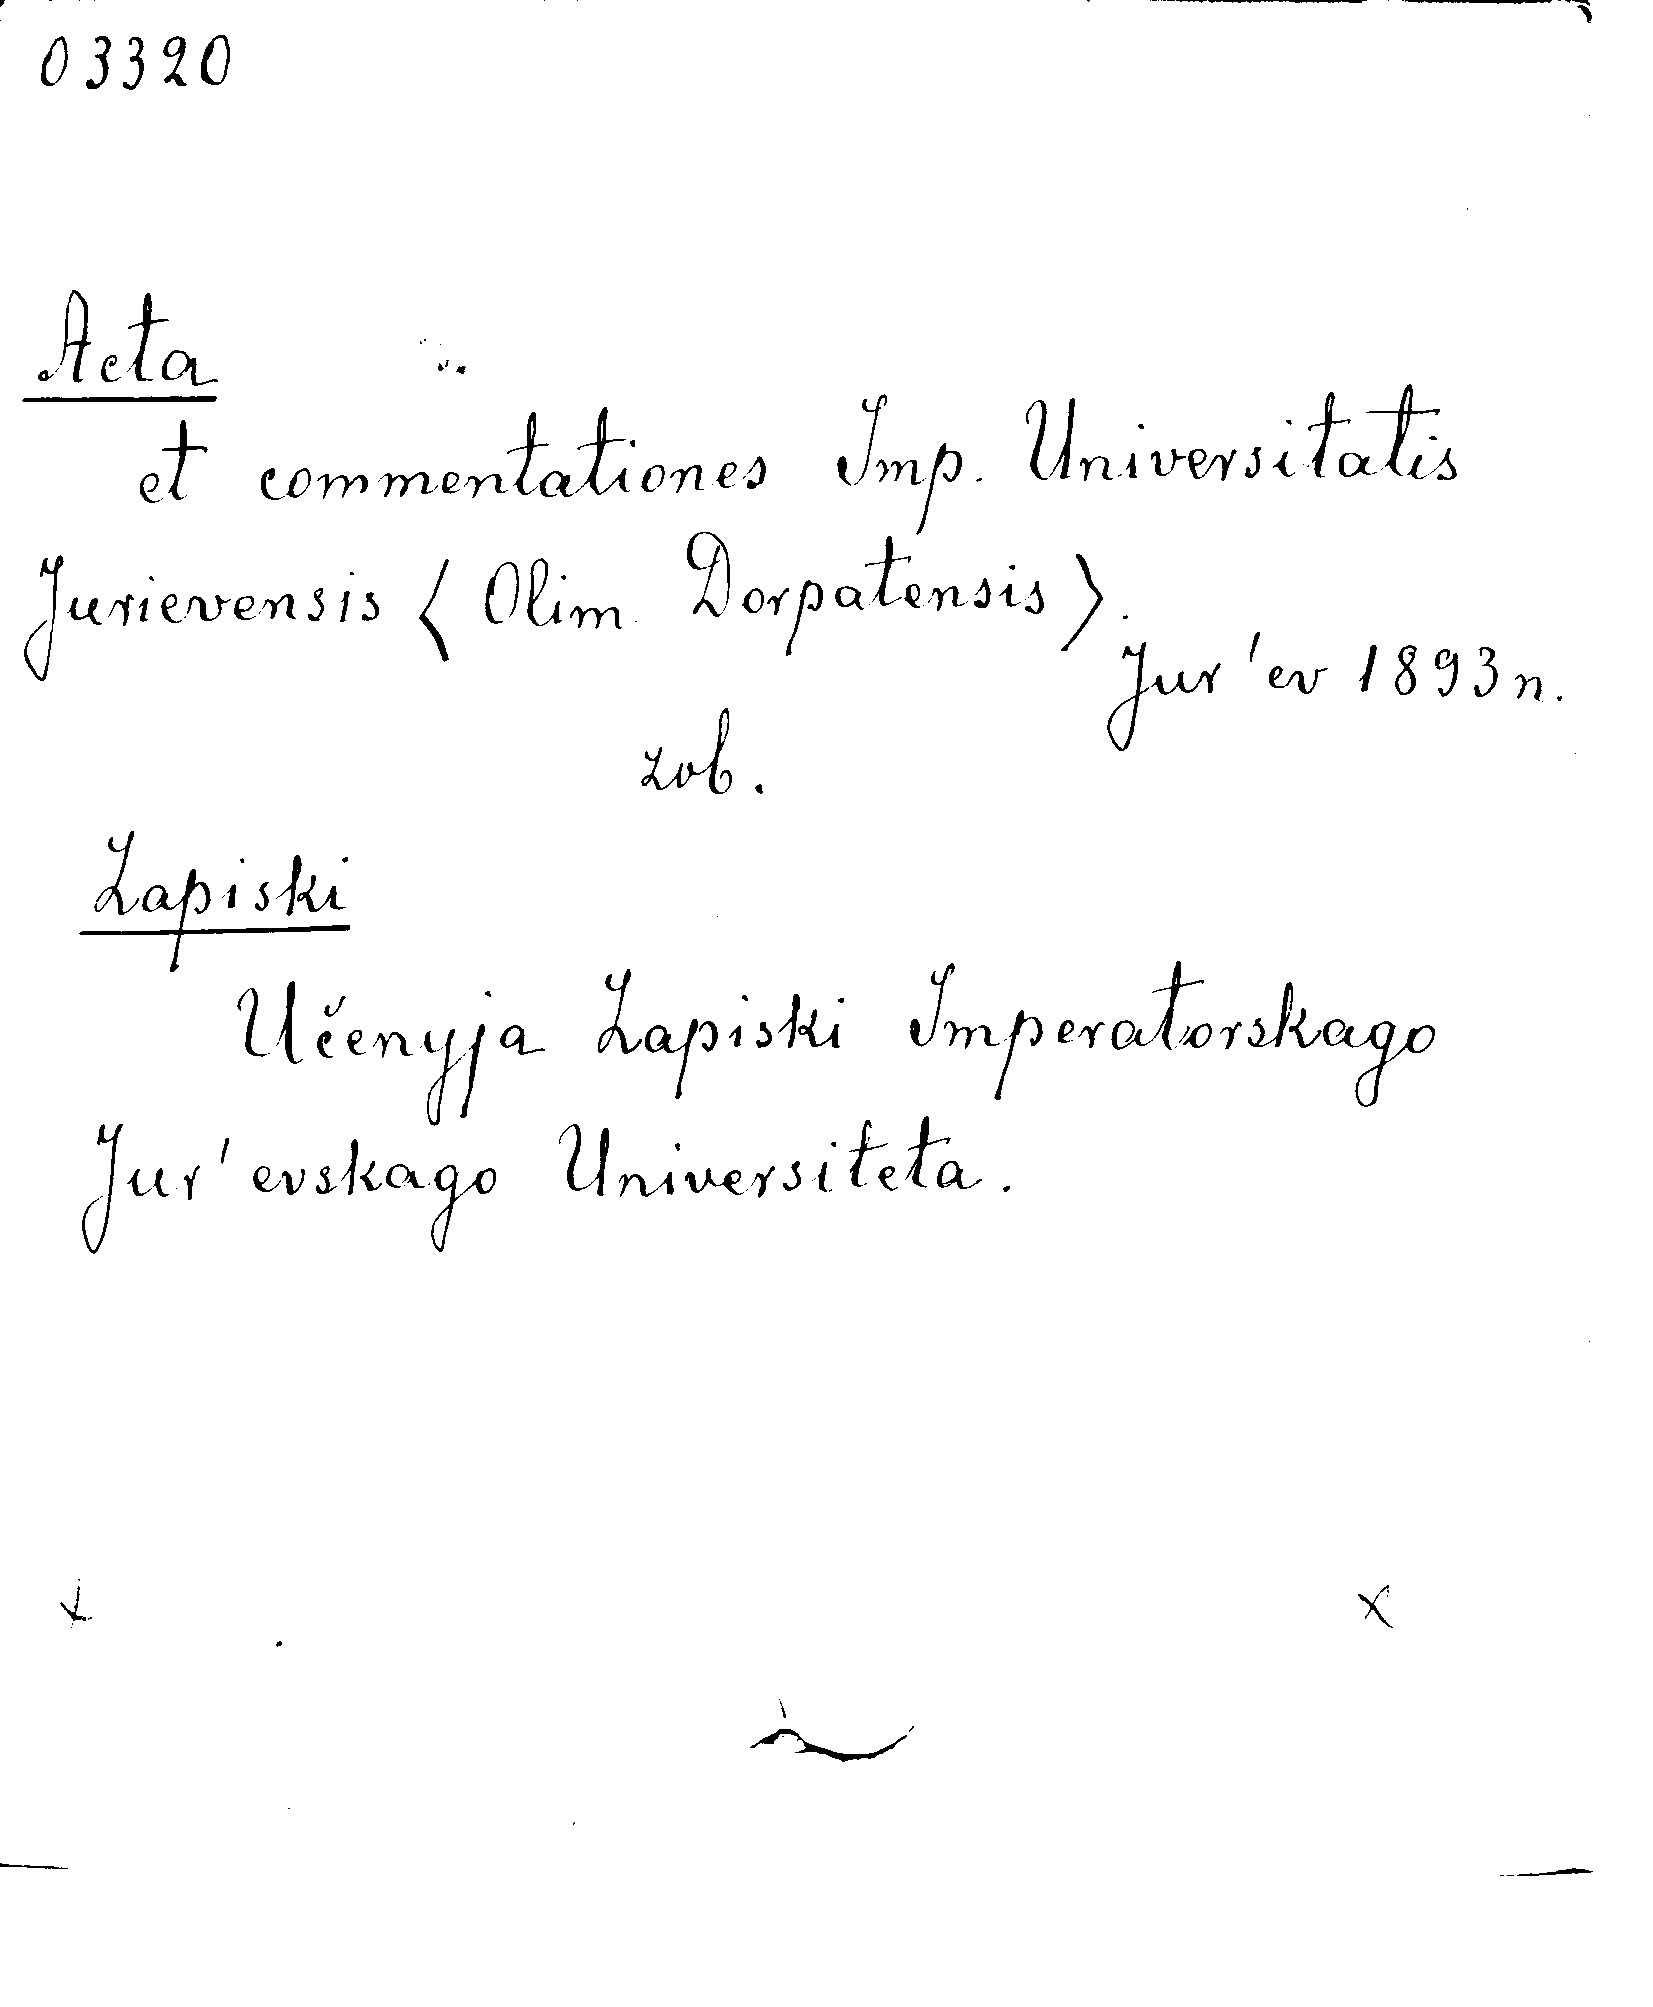 03320
Acta
et commentationes Imp. Universitatis
Jurievensis < Olim Dorpatensis >.
Jur'ev 1893 n.
zob.
Zapiski
Učenyja Zapiski Imperatorskago
Jur'evskago Universiteta.